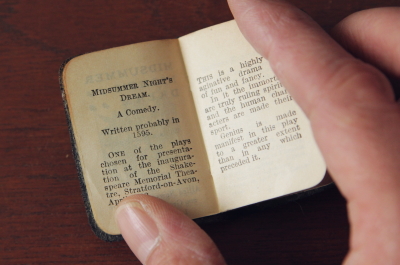 MIDSUMMER NIGHT'S
DREAM.
A Comedy.
Written probably in
1595.
ONE of the plays
chosen for presenta-
tion at the inaugura-
tion of the Shake-
speare Memorial Thea-
tre, Stratford-on-Avon,
THIS is a highly
agitative drama
of fun and fancy.
In it the immortals
are truly ruling spirits
and the human char-
acters are made their
sport.
Genius is made
manifest in this play
to a greater extent
than in any which
preceded it.